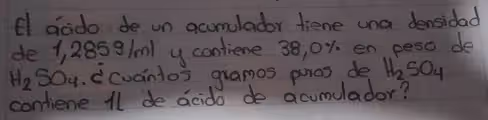 El ácido de un acumulador tiene una densidad
de 1,285g/ml y contiene 38,0% en peso de
H₂SO₄. ¿cuántos gramos puros de H₂SO₄
contiene 1L de ácido de acumulador?